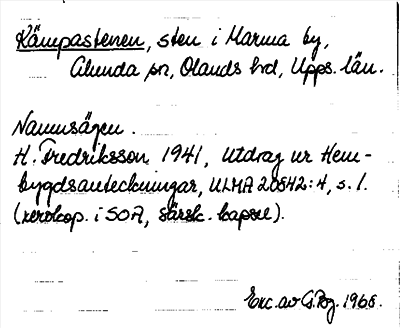 Kämpastenen, sten i Marma by,
Alunda sn, Olands hd, Upps. län.
Namnsägen.
H. Fredriksson 1941, Utdrag ur Hem-
bygdsanteckningar, ULMA 20542:4, s. 1.
(xerokop. i SOA, särsk. kapsel).
Exc. av G. 1968.